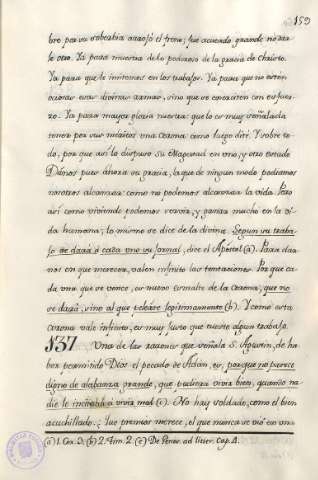 159
bre por su soberbia arrojó el freno; fue acuerdo grande no dar
le otro. Ya para muestra de lo poderoso de la gracia de Christo.
Ya para que le imitemos en los trabajos. Ya para que no estén
ociosas estas divinas armas, sino que se exerciten con esfuer-
zo. Ya para mayor gloria nuestra: que lo es muy señalada
tener por sus méritos una corona como luego diré. Y sobre to
do, por que así lo dispuso su Magestad en uno, y otro estado
Dános pues ahora su gracia, la que de ningun modo podiamos
nosotros alcanzar: como no podemos alcanzar la vida. Pero
así como viviendo podemos crecer, y ganar mucho en la vi
da humana; lo mismo se dice de la divina. Segun su traba-
jo se dará a cada uno su jornal, dice el Apóstol (a). Para dar
nos en que merecer, valen infinito las tentaciones. Por que ca
da una que se vence, es nuevo esmalte de la corona, que no
se dará, sino al que peleáre legitimamente (b). Y como esta
corona vale infinito, es muy justo que cueste algun trabajo.
137 Una de las razones que señala S. Agustin, de ha
ber permitido Dios el pecado de Adán, es, por que no parece
digno de alabanza grande, que pudiera vivir bien, quando na
die le incitaba a vivir mal (c). No hay soldado, como el bien
acuchillado: ¿que premios merece, el que nunca se vió en una
(a) 1. Cor. 3. (b) 2. Tim. 2. (c) De Genes. ad litter. Cap. 4.